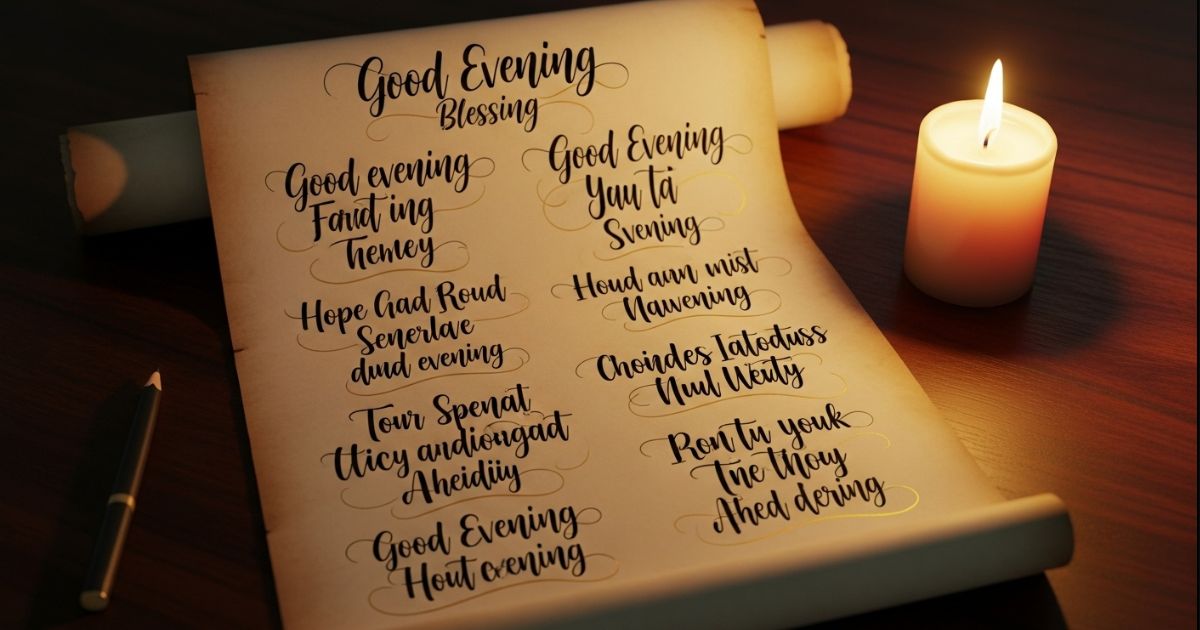 Good Evening
Blessing
Good evening
Farut ing
Temey
Hope Gad Roud
Senerlave
dud evening
Tour Spenat
Uicy andiongad
Aheidiiy
Good Evening
Hout evening
Good Evening
Yuu tá
Svening
Houd aun mist
Nawening
Choindes Iatoduss
Nuul Weuty
Ron tu youk
Tne Uhoy
Ahed dering